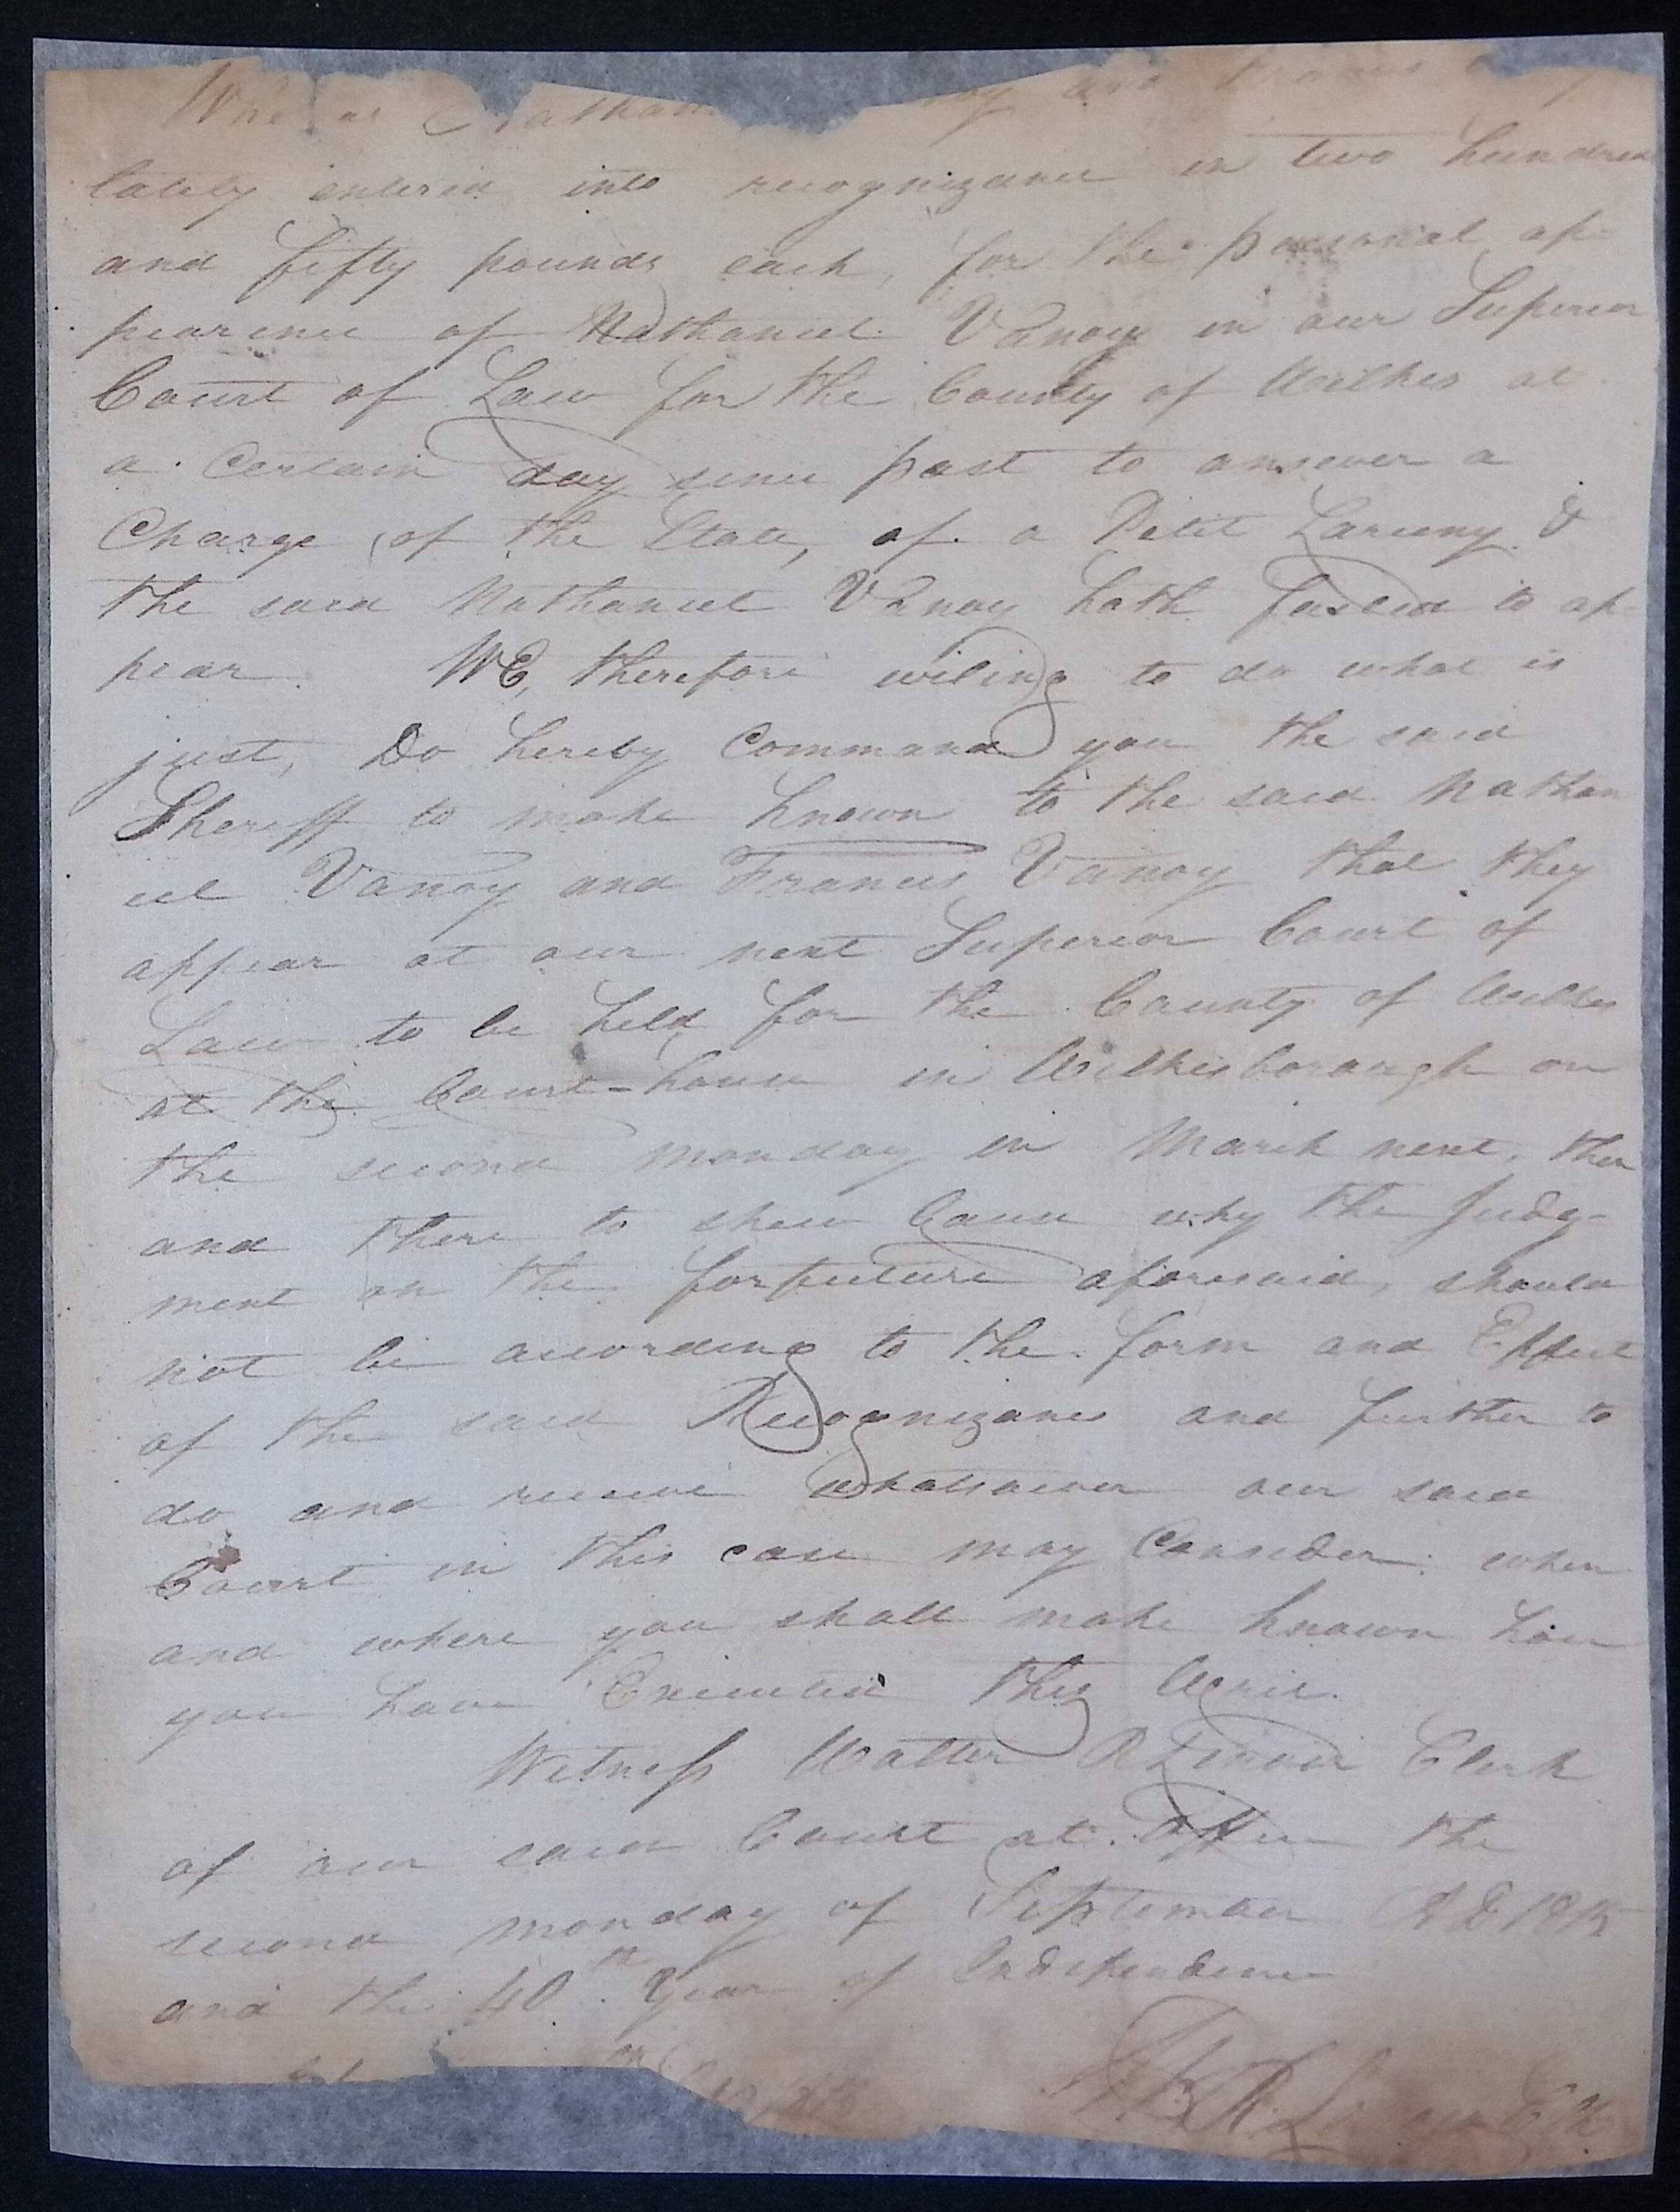 Whereas Nathan and Francis
lately entered into recognizance in two hundred
and fifty pounds each, for the personal ap-
pearence of Nathaniel Vanoy in our Superior
Court of Law for the County of Wilkes at
a Certain day since past to answer a
Charge of the State, of a Petit Larceny &
the said Nathaniel Vanoy hath failed to ap-
pear. WE, therefore wiling to do what is
just, Do hereby Command you the said
Sheriff to make known to the said Nathan
iel Vanoy and Francis Vanoy that they
appear at our next Superior Court of
Law to be held for the County of Wilkes
at the Court-house in Wilkesborough on
the second monday in March next, then
and there to shew Cause why the Judg-
ment on the forfeiture aforesaid, should
not be according to the form and Effect
of the said Recognizance and further to
do and receive whatsoever our said
Court in this case may Consider. when
and where you shall make known how
you have Executed this Writ.
Witness Walter R Lenoir Clerk
of our said Court at Office the
second monday of September AD 1815
and the 40th Year of Independence
W R Lenoir Clk